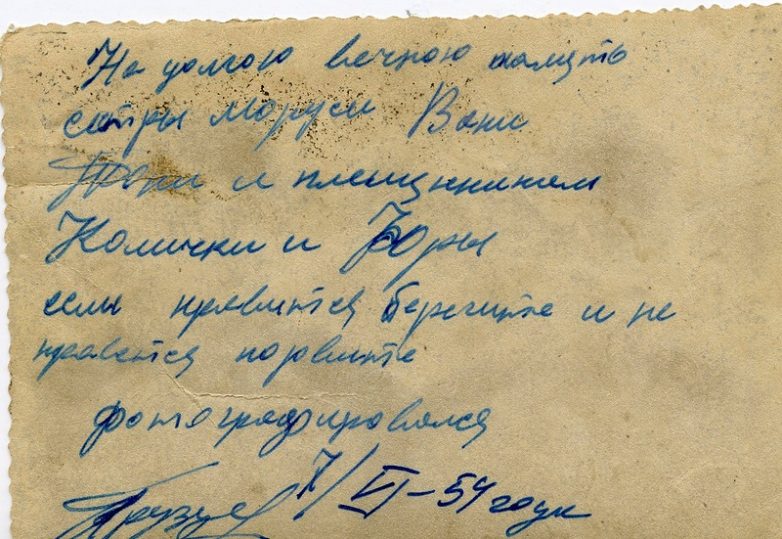 На долгою вечною память
сетры Маруси Вани
и племщникам
Колички и Юры
если нравится берегите и не
правется порвите
фотографировался
7/VI-54 года